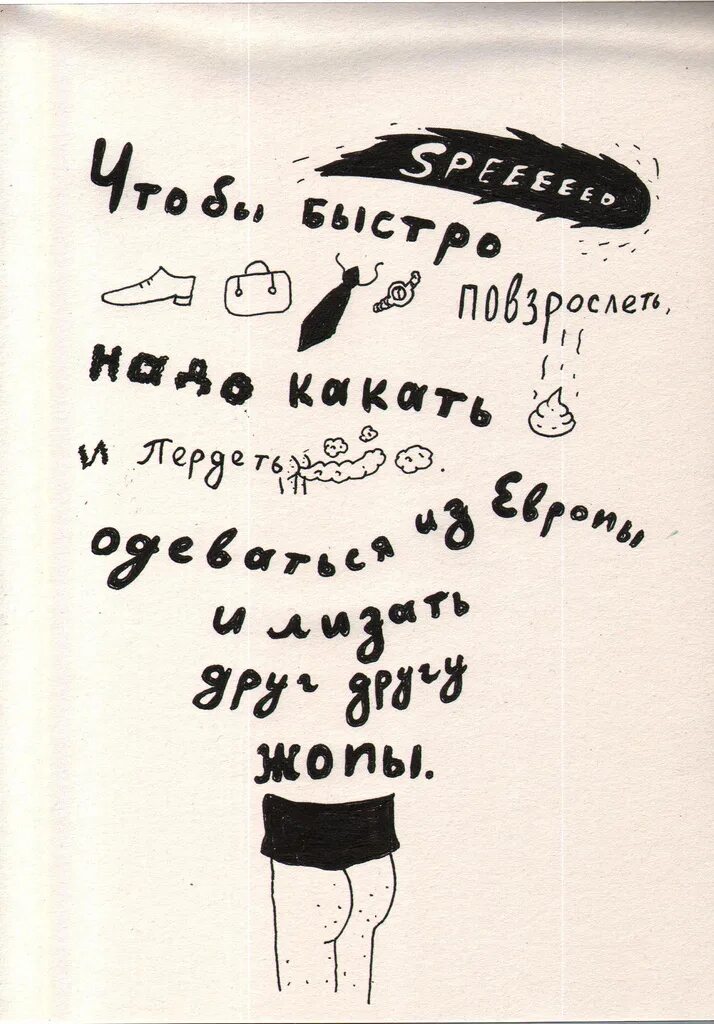 SPEEEEEED
Чтобы быстро
повзрослеть,
надо какать
и пердеть.
одеваться из Европы
и лизать
друг другу
жопы.